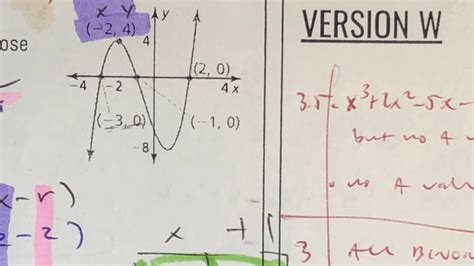 ose
x y
(-2, 4)
4
y
(2, 0)
-4
-2
4 x
(-3, 0)
(-1, 0)
-8
x - r)
- 2)
x + 1
VERSION W
3.5
x³+2x²-5x-
but no A
no A
3 All Binom